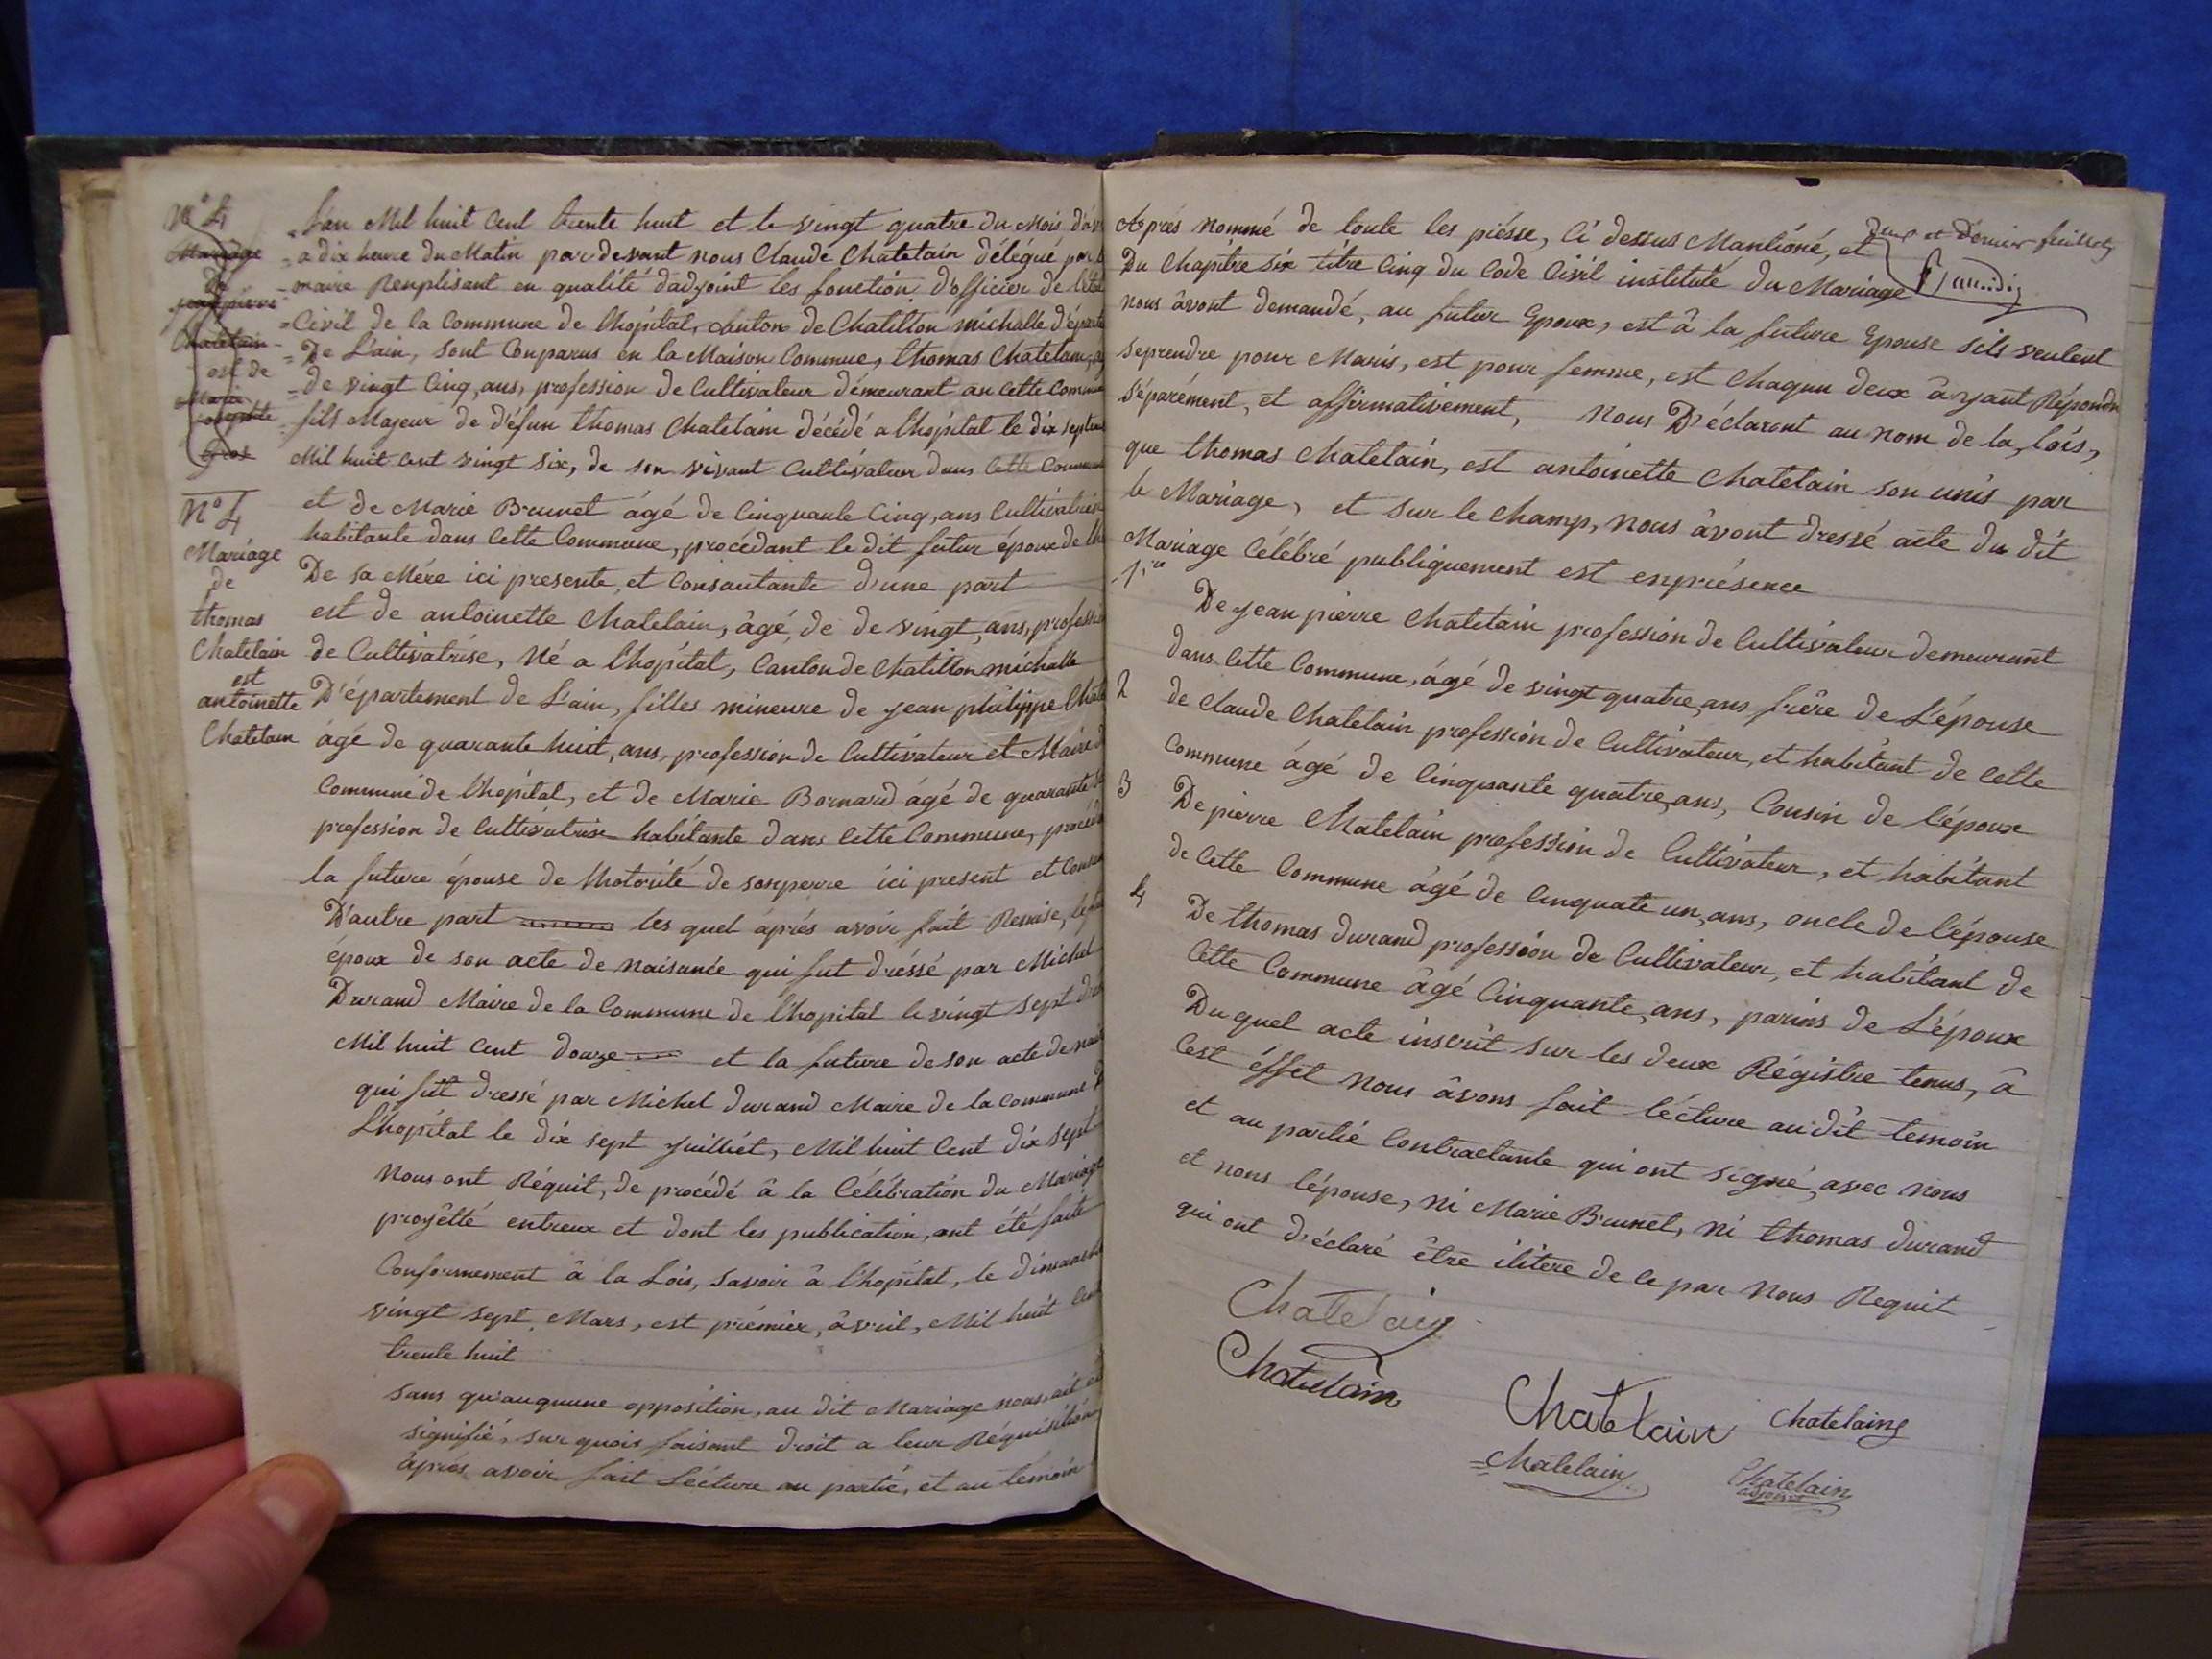 N° 4
Mariage
de
jean pierre
Chatelain
est de
Marie
josephte
Gros
N° 4
Mariage
de
thomas
Chatelain
est
antoinette
Chatelain
Lan Mil huit Cent trente huit et le vingt quatre du Mois d'av
a dix heure du Matin par devant nous Claude Chatelain délégué par l
maire Remplisant en qualité dadjoint les fonction d'officier de l'état
Civil de la Commune de lhopital, Canton de Chatillon michalle d'épartt
De L'ain, sont Conparus en la Maison Commue, thomas Chatelain, a
de vingt Cinq, ans, profession de Cultivateur démeurant an Cette Commun
fils Majeur de défun thomas Chatelain décédé a lhopital le dix septem
Mil huit Cent vingt six, de son vivant Cultivateur dans Cette Commun
et de Marie Brunet âgé de Cinquante Cinq, ans Cultivatrise
habitante dans Cette Commune, procédant le dit futur époux de l'au
De sa Mére ici presente, et Consantante d'une part
est de antoinette Chatelain, âgé, de de vingt, ans, professio
de Cultivatrise, Né a lhopital, Canton de Chatillon michalle
D'épartement de L'ain, filles mineure de jean philippe Chate
âgé de quarante huit, ans, profession de Cultivateur et Maire d
Commune de lhopital, et de Marie Bornard âgé de quarante
profession de Cultivatrise habitante dans Cette Commune, procéd
la future épouse de lhotorité de sonperre ici present et Consan
D'autre part les quel âprés avoir fait Remise, le fu
époux de son acte de naisance qui fut dréssé par Michel
Durand Maire de la Commune de l'hopital le vingt sept d
Mil huit Cent douze et la future de son acte de nais
qui fut dressé par Michel durand Maire de la Commune D
Lhopital le dix sept juilliét, Mil huit Cent dix sept
Nous ont Réquit, de procédé â la Célébration du Mariage
projétté entreux et dont les publication, ont été faite
Conformement â la Lois, savoir â l'hopital, le dimanche
vingt sept Mars, est prémier, âvril, Mil huit Cent
trente huit
sans qu'auquune opposition, au dit Mariage nous, ait et
signifié, sur quois faisant droit a leur Réquisition
âprés avoir fait Lécture au partié, et au témoin
deux et Dernier feuillets
Aprés Nommé de toute les piésse, Ci dessus Mantioné, et
Du Chapitre six titre Cinq du Code Civil institulé du Mariage
nous âvont demandé, au futur Epoux, est â la future Epouse sils veulent
seprendre pour Maris, est pour femme, est Chaqun deux âyant Répondu
séparément, et affirmativement, Nous Déclaront au nom de la, lois,
que thomas Chatelain, est antoinette Chatelain son unis par
le Mariage, et sur le Champ, nous âvont dressé acte du dit
Mariage Célébré publiquement est enprésence
1.er
De jean pierre Chatelain profession de Cultivateur demeurant
dans Cette Commune, âgé de vingt quatre, ans frére de L'épouse
2 de Claude Chatelain profession de Cultivateur, et habitant de Cette
Commune âgé de Cinquante quatre, ans, Cousin de l'époux
3 De pierre Chatelain profession de Cultivateur, et habitant
de Cette Commune âgé de Cinquate un, ans, oncle de l'épouse
4 De thomas durand profession de Cultivateur, et habitant de
Cette Commune âgé Cinquante, ans, parins de L'époux
Du quel acte inscrit sur les deux Régistre tenus, â
Cest éffet nous âvons fait lécture au dit temoin
et au partié Contractante qui ont signé, avec nous
et nons lépouse, ni Marie Brunet, ni thomas durand
qui ont déclaré être ilitére de Ce par nous Requit
Chatelain
Chatelain
Chatelain
Chatelain
Chatelain
Chatelain
adjoint